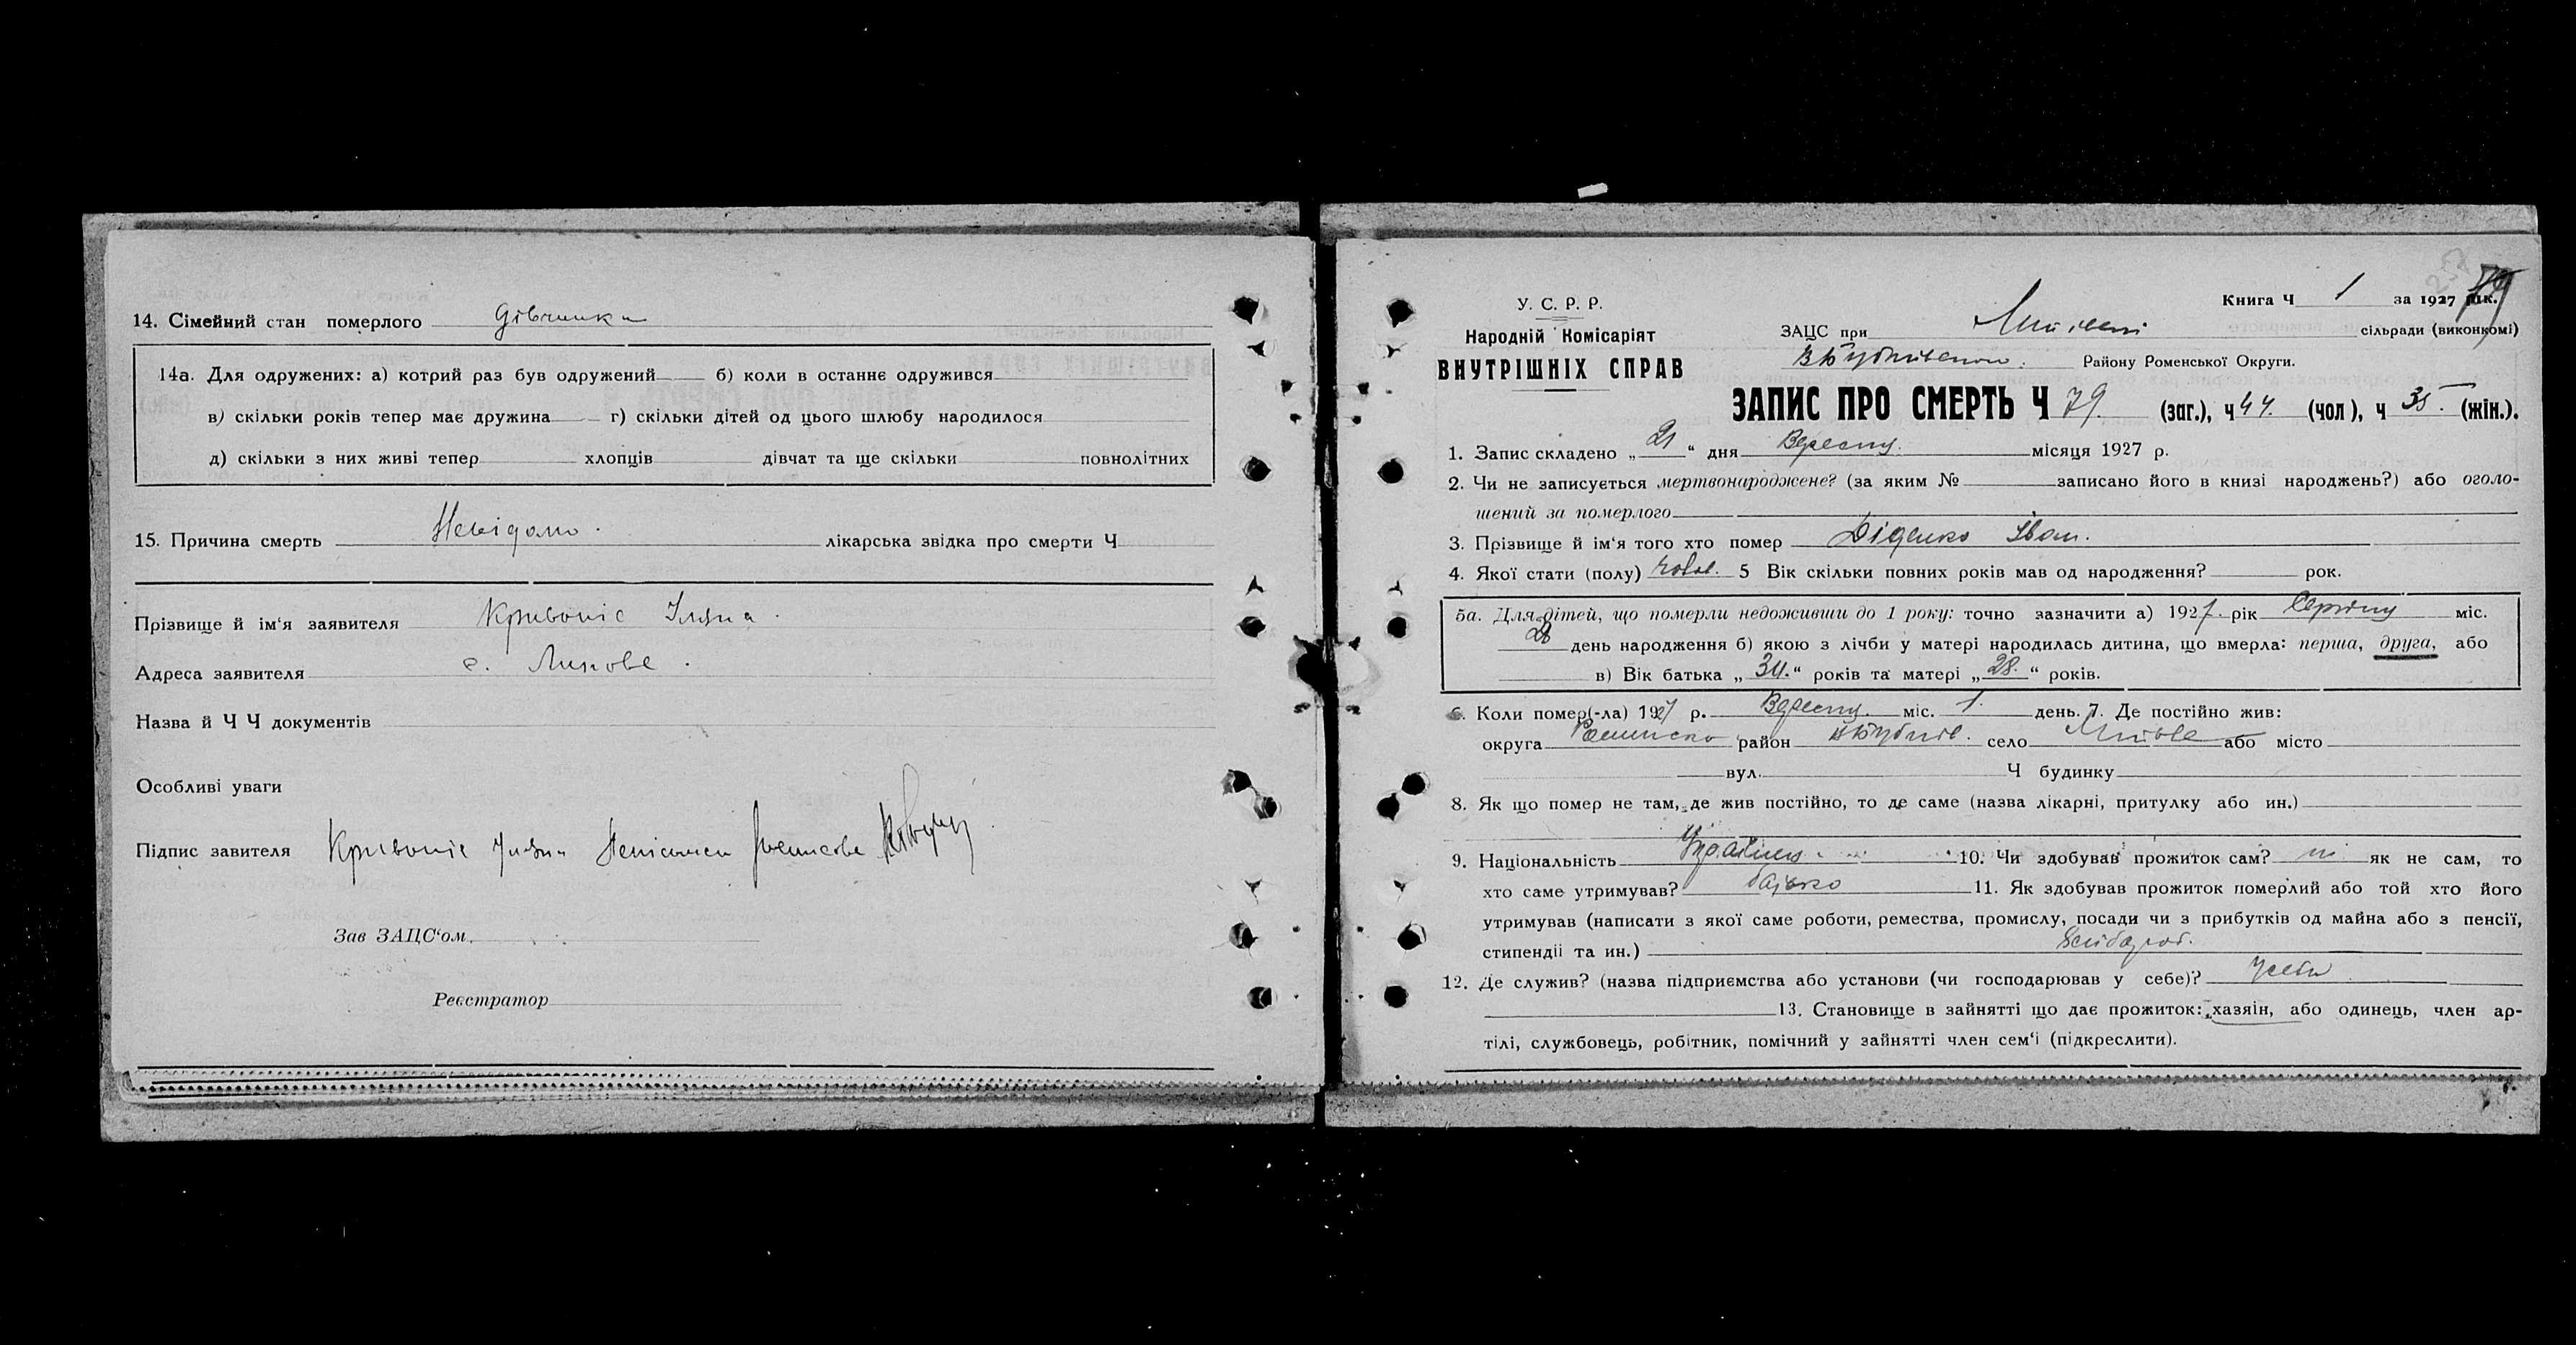 14. Сімейний стан померлого дівчинка
14а. Для одружених: а) котрий раз був одружений б) коли в останнє одружився
в) скільки років тепер має дружина г) скільки дітей од цього шлюбу народилося
д) скільки з них живі тепер хлопців дівчат та ще скільки повнолітних
15. Причина смерть Невідомо. лікарська звідка про смерти Ч
Прізвище й ім‘я заявителя Кривоніс Іляна.
Адреса заявителя с. Липове.
Назва й Ч Ч документів
Особливі уваги
Підпис завителя Кривоніс
Зав ЗАЦС‘ом.
Реєстратор
У. С. Р. Р.
Народній Комісаріят
ВНУТРІШНІХ СПРАВ
Книга Ч 1 за 1927 рік.
79
ЗАЦС при сільради (виконкомі)
Району Роменської Округи.
ЗАПИС ПРО СМЕРТЬ Ч 79. (заг.), ч 44. (чол), ч 35. (жін.).
1. Запис складено „21“ дня Вересня. місяця 1927 р.
2. Чи не записується мертвонароджене? (за яким № записано його в книзі народжень?) або оголо-
шений за померлого
3. Прізвище й ім‘я того хто помер Діденко Іван.
4. Якої стати (полу) чолов. 5 Вік скільки повних років мав од народження? рок.
5а. Для дітей, що померли недоживши до 1 року: точно зазначити а) 1927. рік Серпня міс.
28 день народження б) якою з лічби у матері народилась дитина, що вмерла: перша, друга, або
в) Вік батька „34.“ років та матері „28.“ років.
6. Коли помер(-ла) 1927 р. Вересня. міс. 1. день. 7. Де постійно жив:
округа Роминсько район село або місто
вул. Ч будинку
8. Як що помер не там, де жив постійно, то де саме (назва лікарні, притулку або ин.)
9. Національність Українець 10. Чи здобував прожиток сам? ні як не сам, то
хто саме утримував? батько 11. Як здобував прожиток померлий або той хто його
утримував (написати з якої саме роботи, ремества, промислу, посади чи з прибутків од майна або з пенсії,
стипендії та ин.)
12. Де служив? (назва підприємства або установи (чи господарював у себе)? У себе
13. Становище в зайнятті що дає прожиток: хазяін, або одинець, член ар-
тілі, службовець, робітник, помічний у зайнятті член сем‘ї (підкреслити).